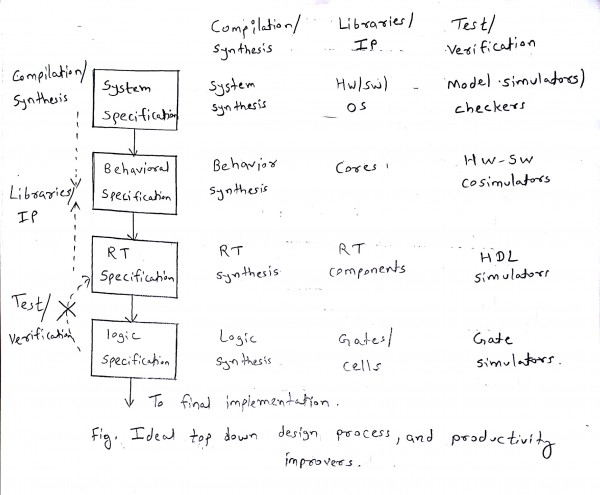 Compilation/ Libraries/ Test/
Synthesis IP Verification
Compilation/
Synthesis
System
Specification
System
synthesis
Hw/sw/
OS
Model simulators/
checkers
Libraries/
IP
Behavioral
Specification
Behavior
synthesis
Cores
Hw-Sw
cosimulators
RT
Specification
RT
synthesis
RT
components
HDL
simulators
Test/
verification
logic
Specification
Logic
Synthesis
Gates/
cells
Gate
simulators.
To final implementation.
Fig. Ideal top down design process, and productivity
improvers.